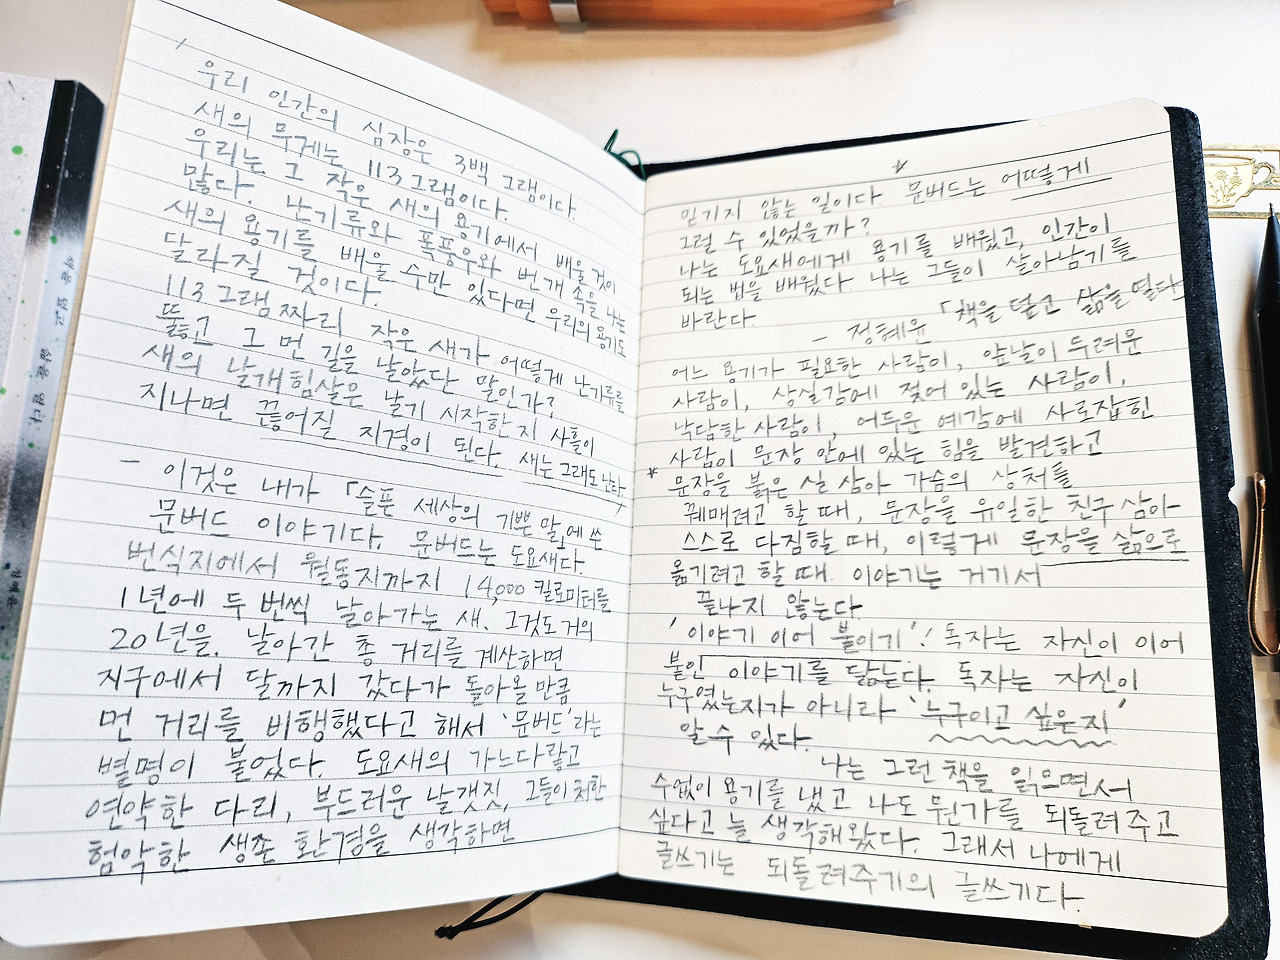 우리 인간의 심장은 3백 그램이다.
새의 무게는 113그램이다.
우리는 그 작은 새의 용기에서 배울 것이
많다. 난기류와 폭풍우와 번개 속을 나는
새의 용기를 배울 수만 있다면 우리의 용기도
달라질 것이다.
113그램짜리 작은 새가 어떻게 난기류를
뚫고 그 먼 길을 날았단 말인가?
새의 날개힘살은 날기 시작한지 사흘이
지나면 끊어질 지경이 된다. 새는 그래도 난다.
- 이것은 내가 「슬픈 세상의 기쁜 말」에 쓴
문버드 이야기다. 문버드는 도요새다.
번식지에서 월동지까지 14,000 킬로미터를
1년에 두 번씩 날아가는 새. 그것도 거의
20년을. 날아간 총 거리를 계산하면
지구에서 달까지 갔다가 돌아올 만큼
먼 거리를 비행했다고 해서 '문버드'라는
별명이 붙었다. 도요새의 가느다랗고
연약한 다리, 부드러운 날갯짓, 그들이 처한
험악한 생존 환경을 생각하면
믿기지 않는 일이다 문버드는 어떻게
그럴 수 있었을까?
나는 도요새에게 용기를 배웠고, 인간이
되는 법을 배웠다 나는 그들이 살아남기를
바란다.
- 정혜윤 「책을 덮고 삶을 열다」
어느 용기가 필요한 사람이, 앞날이 두려운
사람이, 상실감에 젖어 있는 사람이,
낙담한 사람이, 어두운 예감에 사로잡힌
사람이 문장 안에 있는 힘을 발견하고
* 문장을 붉은 실 삼아 가슴의 상처를
꿰매려고 할 때, 문장을 유일한 친구 삼아
스스로 다짐할 때, 이렇게 문장을 삶으로
옮기려고 할 때. 이야기는 거기서
끝나지 않는다.
'이야기 이어 붙이기'! 독자는 자신이 이어
붙인 이야기를 닮는다. 독자는 자신이
누구였는지가 아니라 '누구이고 싶은지'
알 수 있다.
나는 그런 책을 읽으면서
수없이 용기를 냈고 나도 뭔가를 되돌려주고
싶다고 늘 생각해왔다. 그래서 나에게
글쓰기는 되돌려주기의 글쓰기다.
책을 덮고 삶을 열다